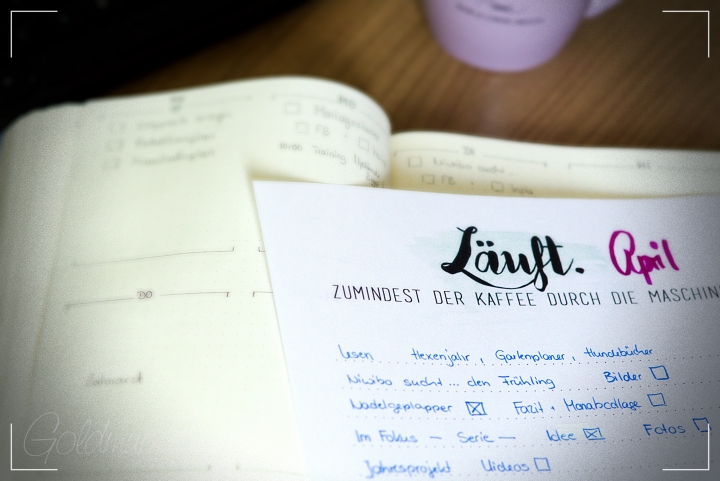 Mo
FB
Training
DI
FB
Läuft. April
ZUMINDEST DER KAFFEE DURCH DIE MASCHIN
lesen Hexenjahr, Gartenplaner, Hundebücher
sucht... den Frühling Bilder
Nadelgeplapper Fazit + Monatscollage
Im Fokus - Serie - Idee Fotos
Jahresprojekt Videos
DO
Zahnarzt